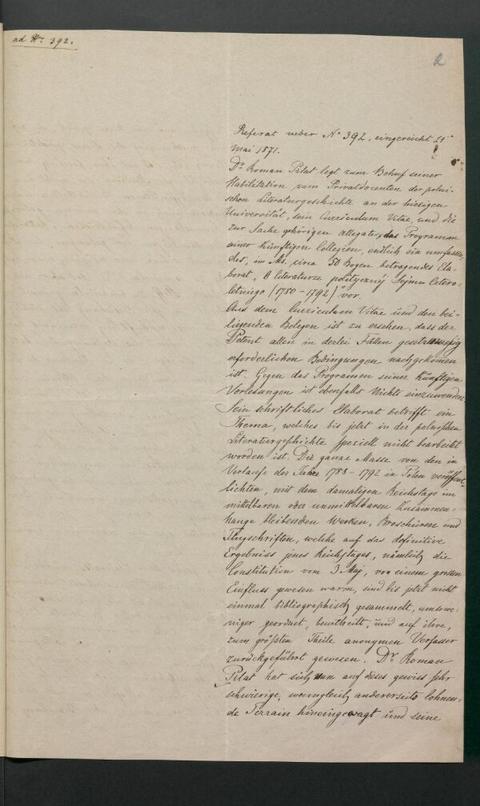 ad Nr. 392.
2
Referat ueber No 392, eingereicht 21
Mai 1871.
Dr Roman Pilat legt zum Behuf seiner
Habilitation zum Privatdocenten der polni-
schen Literaturgeschichte an der hiesigen
Universität, sein Curriculum Vitae, und die
zur Sache gehörigen allegate, das Programm
seiner künftigen Collegien, endlich ein umfassen-
des, in Ms. circa 50 Bogen betragendes Ela-
borat, "O literaturze politycznej Sejmu cztero-
letniego (1788-1792)" vor.
Aus dem Curriculum Vitae und den bei-
liegenden Belegen ist zu ersehen, dass der
Petent allen in derlei Fällen gesetzmässig
erforderlichen Bedingungen nachgekommen
ist. Gegen das Programm seiner künftigen
Vorlesungen ist ebenfalls Nichts einzuwenden.
Sein schriftliches Elaborat betrifft ein
Thema, welches bis jetzt in der polnischen
Literaturgeschichte speziell nicht bearbeitet
worden ist. Die ganze Masse von den im
Verlaufe der Jahre 1788-1792 in Polen veröffent-
lichten, mit dem damaligen Reichstage im
mittelbaren oder unmittelbaren Zusammen-
hange bleibenden Werken, Broschüren und
Flugschriften, welche auf das definitive
Ergebniss jenes Reichstages, nämlich die
Constitution vom 3. Maj, von einem grossen
Einfluss gewesen waren, sind bis jetzt nicht
einmal bibliographisch gesammelt, umsowe-
niger geordnet, beurtheilt, und auf ihre,
zum größten Theile anonymen Verfasser
zurückgeführt gewesen. Dr Roman
Pilat hat sich nun auf dieses gewiss sehr
schwierige, wenngleich andererseits lohnen-
de Terrain hineingewagt und seine